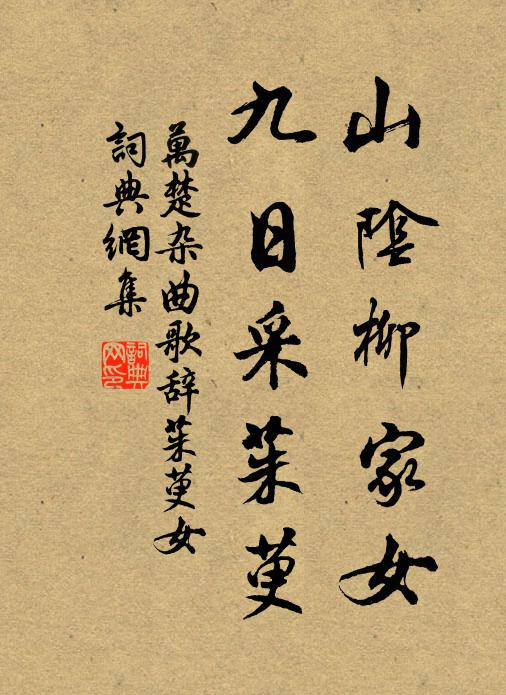 山陰柳家女
九日采茱萸
萬楚杂曲歌辞茱萸女
詞典網集
詞典
网印